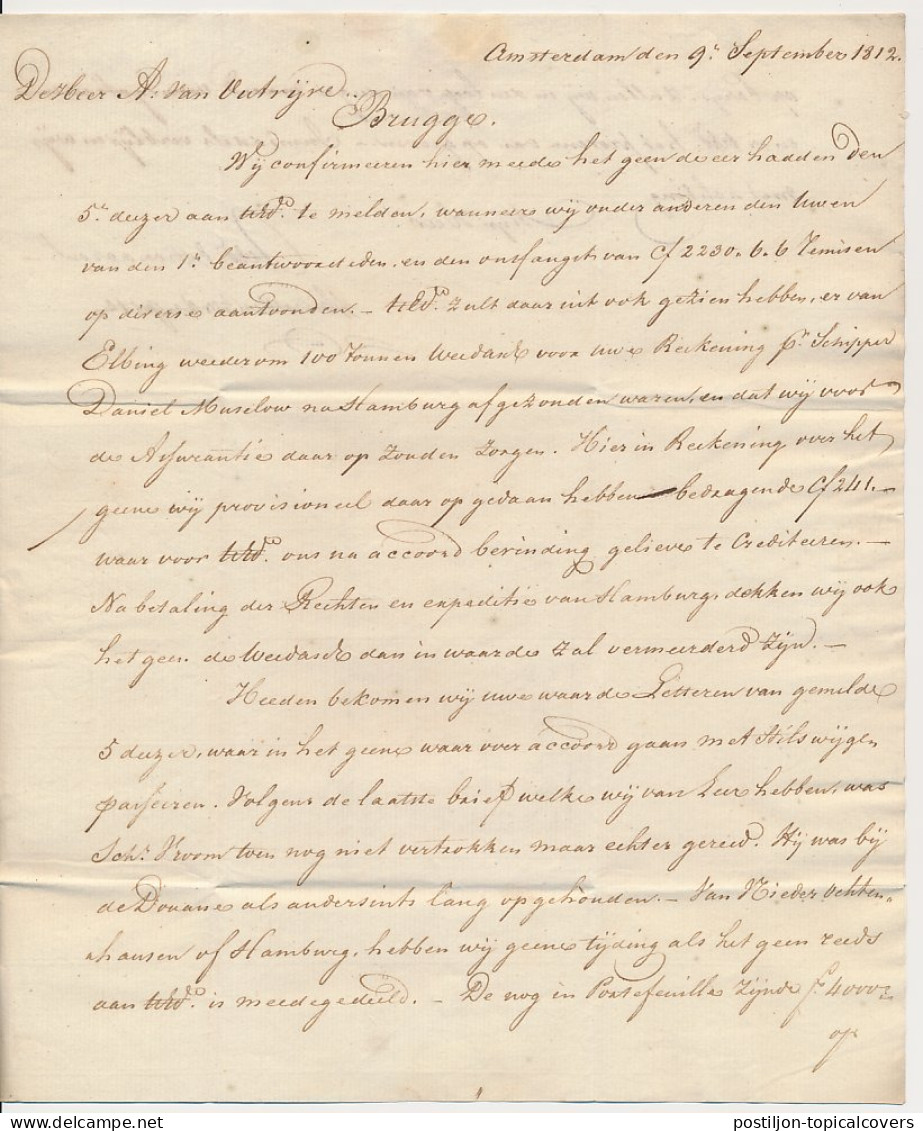 Amsterdam den 9n. September 1812.
De Heer A: Van Outrijve.
Brugge.
Wij confirmeeren hier meede het geen de eer hadden den
5n. deezer aan UEd. te melden, wanneer wij onder anderen den Uwen
van den 1n. beantwoordeden, en den ontfangst van Cf 2230.6.6 Remisen
op diverse aantoonden. — UEd. zult daar uit ook gezien hebben, er van
Elbing weederom 100 Tonnen Weedasch voor uwe Reekening pr. Schipper
Daniel Muselow na Hamburg afgezonden waren, en dat wij voor
de Assurantie daar op zouden zorgen. Hier in Reekening over het
geene wij provisioneel daar op gedaan hebben bedragende Cf 241.—
waar voor UEd. ons na accoord bevinding gelieve te Crediteeren. —
Na betaling der Rechten en expeditie van Hamburg, dekken wij ook
het geen de Weedasch dan in waarde zal vermeerderd zijn. —
Heeden bekomen wij uwe waarde Letteren van gemelde
5 deezer, waar in het geene waar over accoord gaan met stilswijgen
passeeren. Volgens de laatste brief welke wij van Leer hebben, was
Schr. Vroom toen nog niet vertrokken maar echter gereed. Hij was bij
de Douane als andersints lang opgehouden. — Van Nieder Ochten-
hausen of Hamburg, hebben wij geene tijding als het geen reeds
aan UEd. is meedegedeeld. — De nog in Portefeuille zijnde f 4000
op
postiljon-topicalcovers